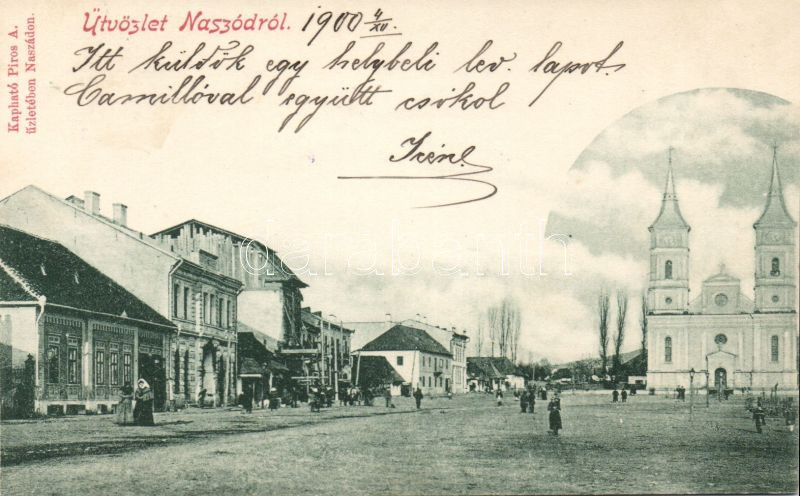 Kapható Piros A.
üzletében Naszádon.
Üdvözlet Naszódról. 1900 4/XII.
Itt küldök egy helybeli lev. lapot.
Camillóval együtt csókol
Irén
darabanth.com